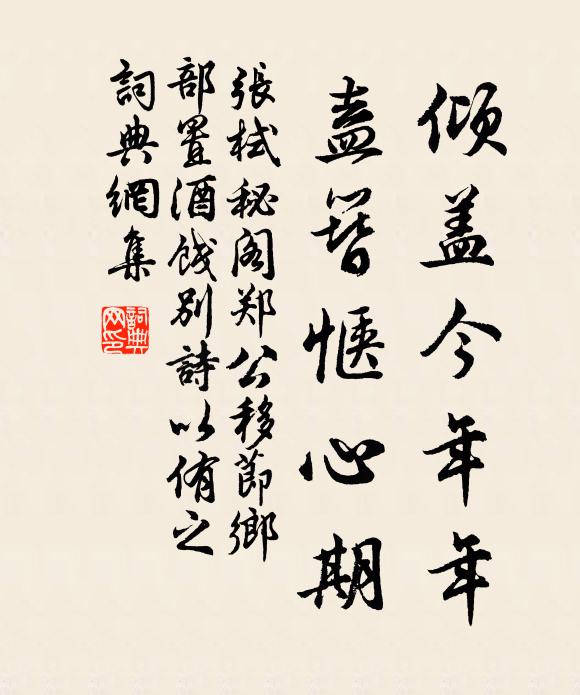 傾盖今年年
盍簪惬心期
張栻秘阁郑公移節鄉
部置酒餞别詩以侑之
詞典網集
詞典网印